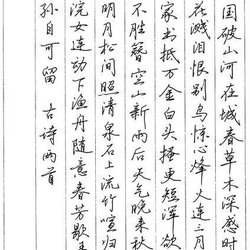 国破山河在城春草木深感时
花溅泪恨别鸟惊心烽火连三月
家书抵万金白头搔更短浑欲
不胜簪空山新雨后天气晚来秋
明月松间照清泉石上流竹喧归
浣女连动下渔舟随意春芳歇王
孙自可留 古诗两首